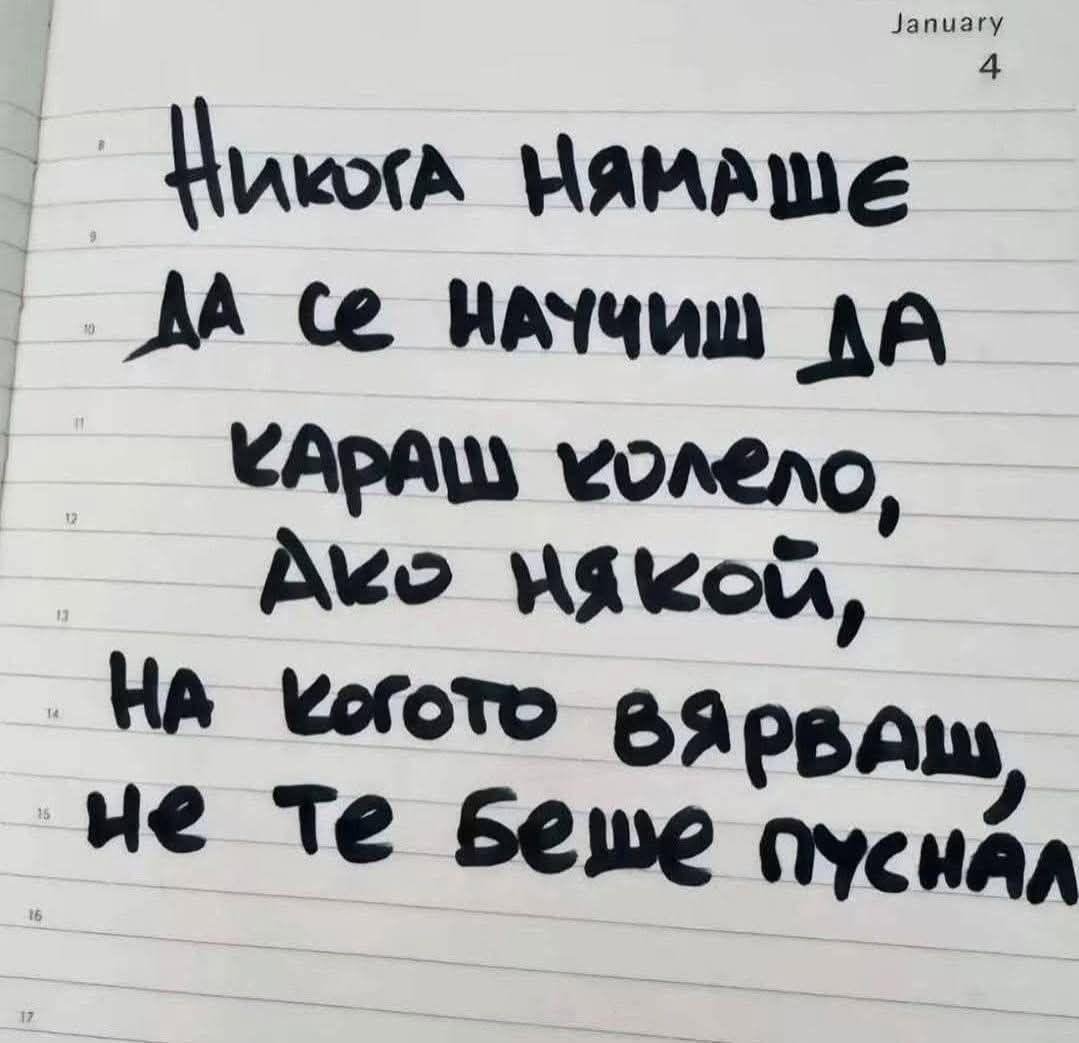 January
4
8
Никога нямаше
9
да се научиш да
10
11
караш колело,
12
Ако някой,
13
на когото вярваш,
14
не те беше пуснал
15
16
17